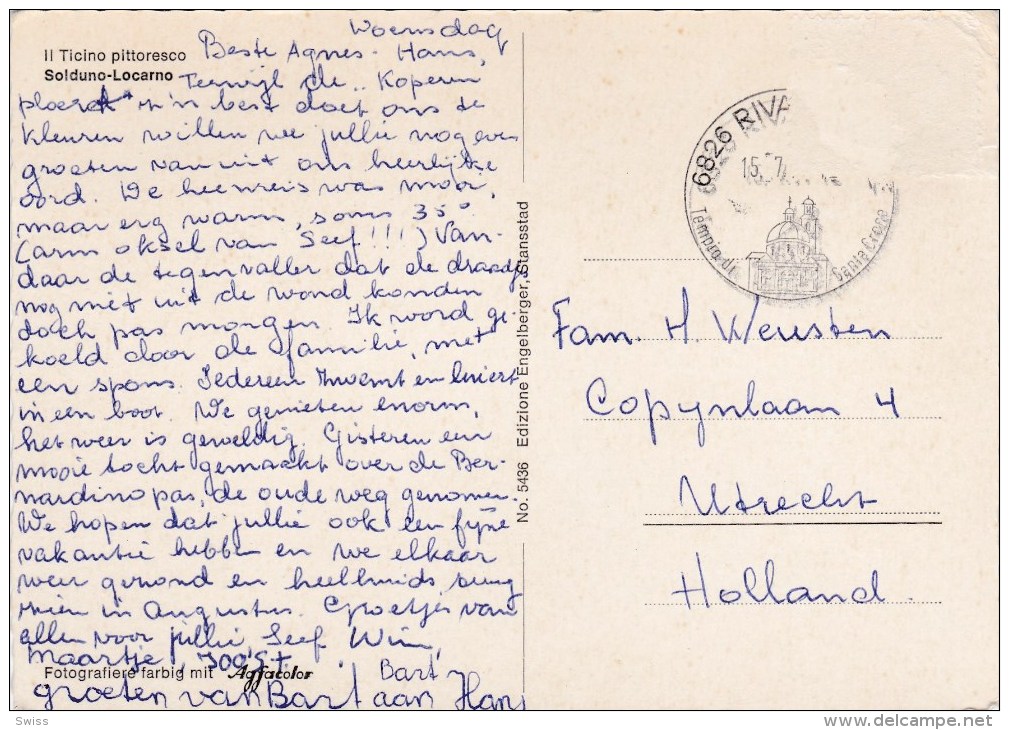 Woensdag
Il Ticino pittoresco
Solduno-Locarno
Beste Agnes - Hans,
Terwijl de "Koperen
ploert" z'n best doet ons te
kleuren willen we jullie nog even
groeten vanuit ons heerlijke
oord. De heenreis was mooi,
maar erg warm, soms 35°
(arm oksel van Seef!!!) Van-
daar de tegenvaller dat de draadjes
nog niet uit de wond konden
doch pas morgen. Ik word ge-
koeld door de familie, met
een spons. Iedereen zwemt en luiert
in een boot. We genieten enorm,
het weer is geweldig. Gisteren een
mooie tocht gemaakt over de Ber-
nardinopas, de oude weg genomen.
We hopen dat jullie ook een fijne
vakantie hebben en we elkaar
weer gezond en heelhuids terug
zien in Augustus. Groetjes van
allen voor jullie, Seef Wim,
Maartje, Joost
Bart
Fotografiere farbig mit Agfacolor
groeten van Bart aan Hans
No. 5436 Edizione Engelberger, Stansstad
6826 RIVA
15. 7
Tempio di Santa Croce
Fam. H. Weusten
Copijnlaan 4
Utrecht
Holland
Swiss
www.delcampe.net